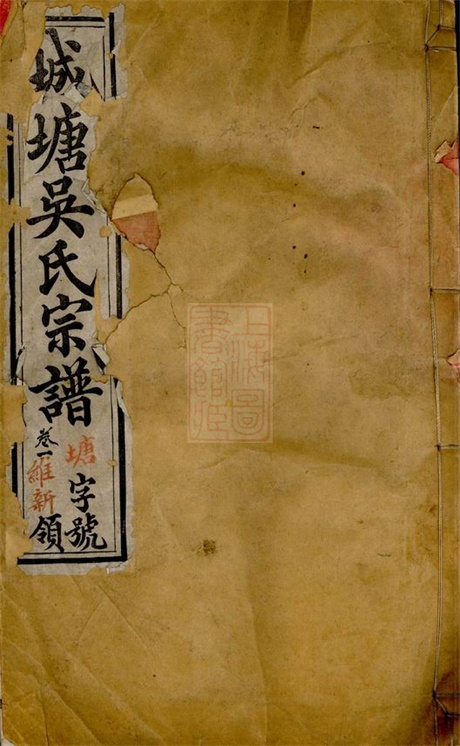 城塘吳氏宗譜
卷一
塘字號
維新領
上海圖
書館